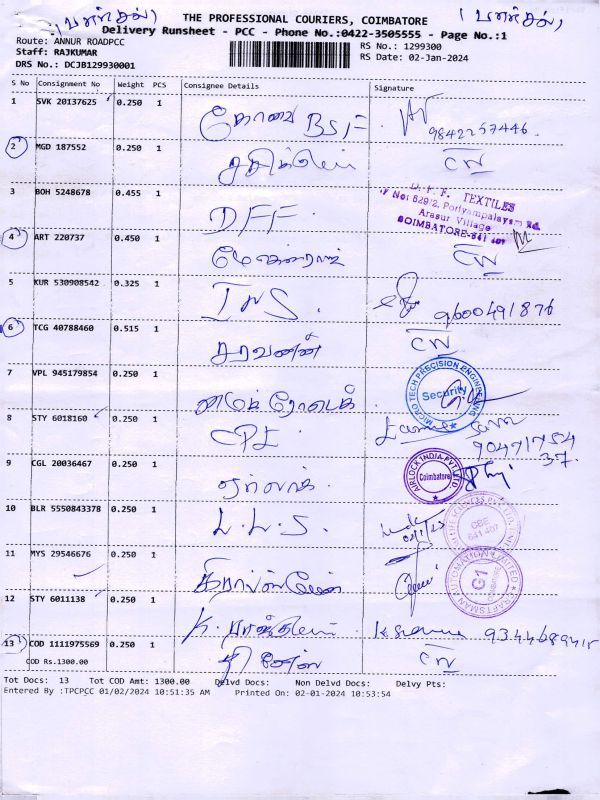 (வளர்தல்) THE PROFESSIONAL COURIERS, COIMBATORE (வளர்தல்)
Delivery Runsheet - PCC - Phone No.:0422-3505555 - Page No.:1
Route: ANNUR ROADPCC RS No.: 1299300
Staff: RAJKUMAR RS Date: 02-Jan-2024
DRS No.: DCJB129930001
S No Consignment No Weight PCS Consignee Details Signature
1 SVK 20137625 0.250 1 கோவை BSF 9842257446
2 MGD 187552 0.250 1 CN
3 BOH 5248678 0.455 1 DFF D.F.F. TEXTILES
No: 629/2, Poriyampalayam Rd,
Arasur Village
COIMBATORE-641 407
4 ART 220737 0.450 1 CN
5 KUR 530908542 0.325 1 INS. 9600491876
6 TCG 40788460 0.515 1 சரவணன் CN
7 VPL 945179854 0.250 1 MICRO TECH PRECISION ENGINEERING Security
8 STY 6018160 0.250 1 CPE 90471754
37.
9 CGL 20036467 0.250 1 ஏர்லாக் AIRLOCK INDIA PVT LTD Coimbatore
10 BLR 5550843378 0.250 1 L.L.S. CBE 641 407
11 MYS 29546676 0.250 1 கிராப்ஸ்மேன் CRAFTSMAN AUTOMATION LIMITED G1
12 STY 6011138 0.250 1
13 COD 1111975569 0.250 1 CN
COD Rs.1300.00
Tot Docs: 13 Tot COD Amt: 1300.00 Delvd Docs: Non Delvd Docs: Delvy Pts:
Entered By :TPCPCC 01/02/2024 10:51:35 AM Printed On: 02-01-2024 10:53:54